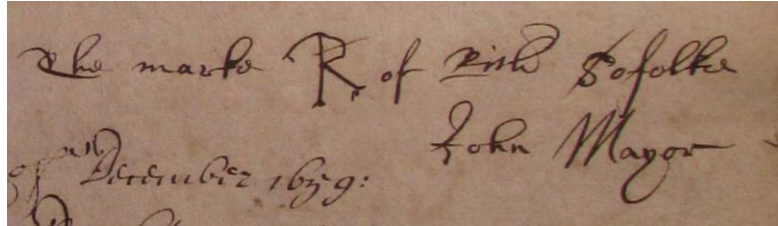 The marke R of Rich Sofolke
John Mayor
December 1659: